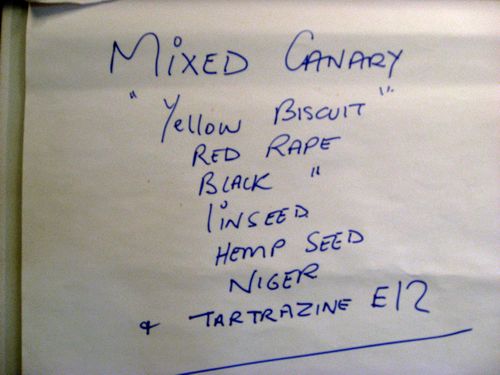 MiXED CANARY
"Yellow BISCUIT"
RED RAPE
BLACK "
linSEED
HEMP SEED
NIGER
& TARTRAZINE E12